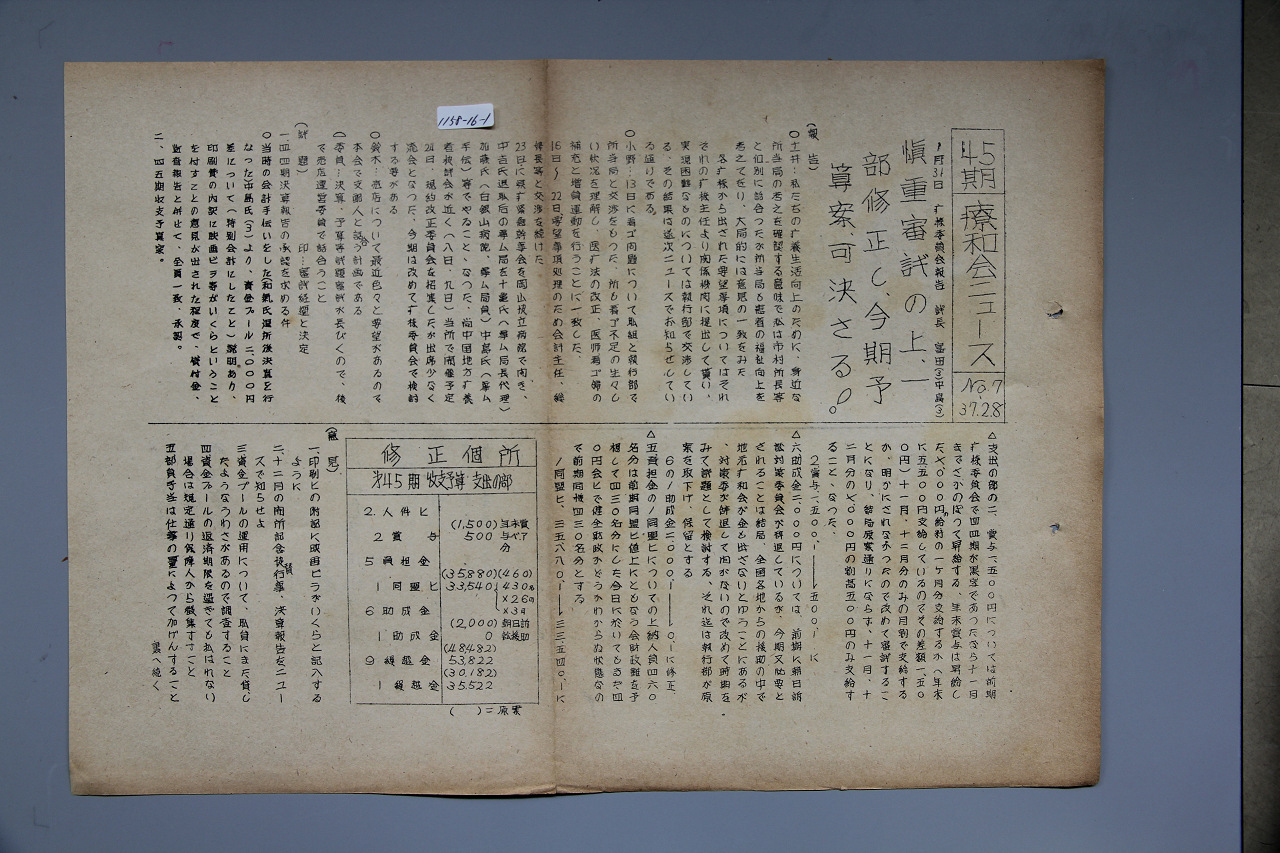 1158-16-1
45期 療和会ニュース No.7 37.2.8
1月31日 拡様委員会報告 議長 富田(3)中島(3)
慎重審試の上、一
部修正し、今期予
算案、可決さる!。
(報告)
○土井…私たちの療養生活向上のために、身近な
所当局の考えを確認する意味で私は市村所長宮
と個別に話合つたが所当局も患者の福祉向上を
考えており、大局的には意見の一致をみた
各病様から出された要望事項についてはそれ
ぞれの病様主任より関係機関に提出して貰い、
実現困難なものについては執行部で交渉してい
る、その結果は逐次ニュースでお知らせしてい
る通りである。
○小野…13日に看ゴ問題について取組と執行部で
所当局と交渉をもつた、所も看ゴ不足の生々し
い状況を理解し、医療法の改正、医師看ゴ婦の
補充と増員運動を行うことに一致した、
16日〜22日要望事項処理のため会計主任、総
婦長等と交渉を続けた
23日に県療緊急幹事会を岡山成立病院で向き、
中吉氏退取后の専ム局を十亀氏(専ム局長代理)
加藤氏(白銀山病院、専ム局員)中島氏(専ム
手伝)等でやること、なつた、尚中国地方療養
者検討会が近く(八日、九日)当所で開催予定
24日、規約改正委員会を招集したが出席少なく
流会となつた、今期は改めて療様委員会で検討
する要がある
○鈴木…売店について最近色々と要望があるので
本会で支配人と話合う計画である
○委員…決算、予算等試題審試が長びくので、後
で売店運営委員で話合うこと
(試題) 印…審試経理と決定
一、四四期決算報告の承認を求める件
○当時の会計手伝いをした和気氏湿所后決算を行
なつた中島氏(3)より、資金プール二〇〇〇円
差について(特別会計にしたこと)説明あり、
印刷費の内訳に映画ヒヲ等がいくらということ
を付すとの意見が出された程度で、償付金、
監査報告と併せて、全員一致、承認。
二、四五期収支予算案。
△支出の部の二、賞与一、五〇〇円については前期
療様委員会で四四期が黒字であつたなら十一月
までさかのぼつて昇給する、年末賞与は昇給し
た×〇〇〇円給料の一ヶ月分支給するが(年末
に五五〇〇円支給しているのでその差額一、五〇
〇円)十一月、十二月分のみの月割で支給する
か、明かにされなかつたので改めて審討するこ
とになり、結局原案通りにならず、十一月、十
二月分の×〇〇〇円の割高五〇〇円のみ支給す
ることとなつた、
2賞与一、五〇〇、―→五〇〇、に
△六助成金二、〇〇〇円については、前期に朝日訴
訟対策委員会が辞退しているが、今期又必要と
されることは結局、全国各地からの援助の中で
地元療和会が金も出さないとゆうことにあるが
、対策委が辞退して間がないので改めて時期を
みて試題として検討する、それ迄は執行部が原
案を取下げ、保留とする
6の1助成金二〇〇〇―→〇、に修正、
△五負担金の1同盟ヒについての上納人員四六〇
名分は前期同盟ヒ値上にともなう会財政難を予
想して四三〇名分にした今日に於いてもなお四
〇円会ヒで健全財政かどうかわからぬ状態なの
で前期同様四三〇名分とする
1同盟ヒ、三五八八〇、―→三三、五四〇、に
修正個所
第45期収支予算 支出の部
2. 人件ヒ
2 賞与 (1,500) 500 当年賞与ベア分
5 負担金
1 同盟ヒ (35880) 33,540 (460) (430名×26円×3月
6 助成金
1 助成金 (2,000) 0 朝日訴訟援助
9 繰越金 (48,482) 53,822
1 繰越金 (30,182) 35,522
( )=原案
(意見)
一、印刷ヒの附記に映画ヒヲがいくらと記入する
ように
二、十二月の開所記念後行事、決算報告をニュー
スで知らせよ
三、資金プールの運用について、取員にまた貸し
たようなうわさがあるので調査すること
四、資金プールの返済期限を過ぎても払はれない
場合は規定通り保障人から徴集すること
五、部員手当は仕事の量によつて加げんすること
裏へ続く